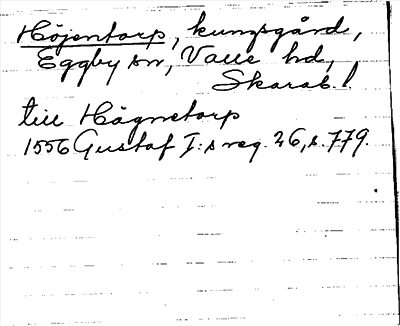 Höjentorp, kungsgård,
Eggby sn, Valle hd,
Skarab. l.
till Högnetorp
1556 Gustaf I:s reg. 26, s. 779.